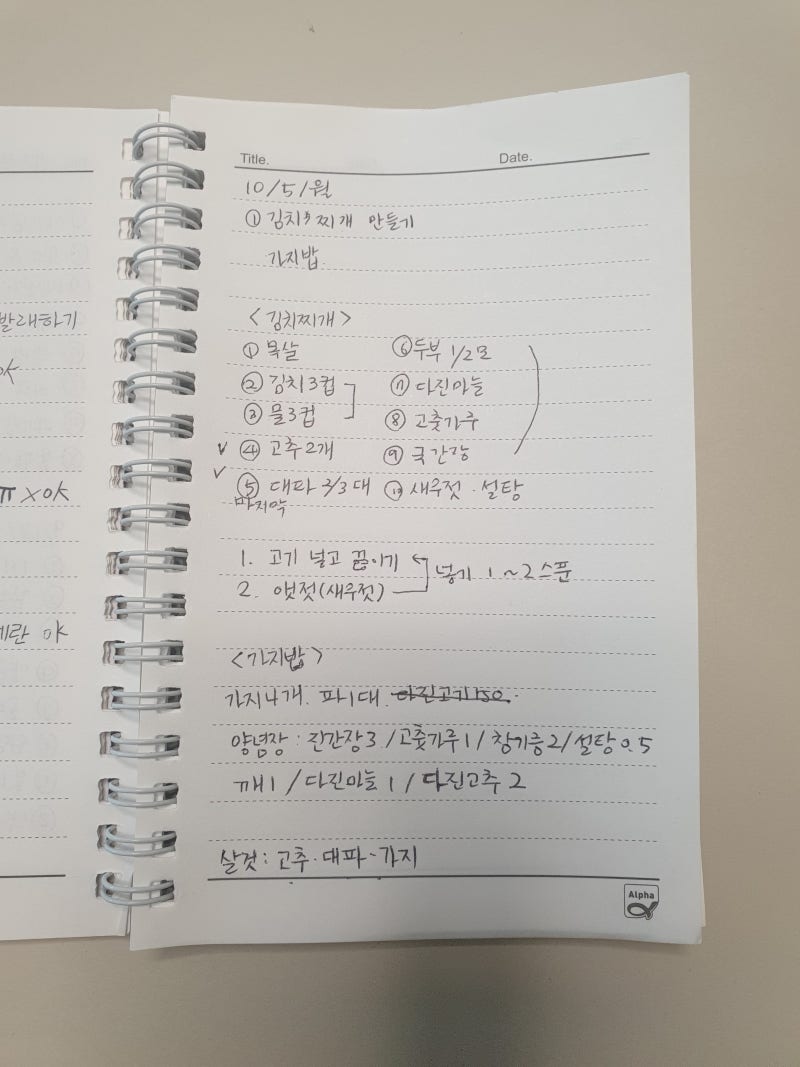 Title. Date.
10/5/월
① 김치찌개 만들기
가지밥
발래하기
<김치찌개>
① 목살 ⑥ 두부 1/2모
② 김치3컵 ⑦ 다진마늘
③ 물3컵 ⑧ 고춧가루
✓ ④ 고추2개 ⑨ 국간장
✓ ⑤ 대파 2/3대 ⑩ 새우젓·설탕
마지막
ㅠxok
1. 고기 넣고 끓이기
넣기 1~2스푼
2. 액젓(새우젓)
계란 ok
<가지밥>
가지4개. 파1대. 다진고기150.
양념장 : 진간장3 / 고춧가루1 / 참기름2 / 설탕0.5
깨1 / 다진마늘1 / 다진고추2
살것 : 고추·대파·가지
Alpha